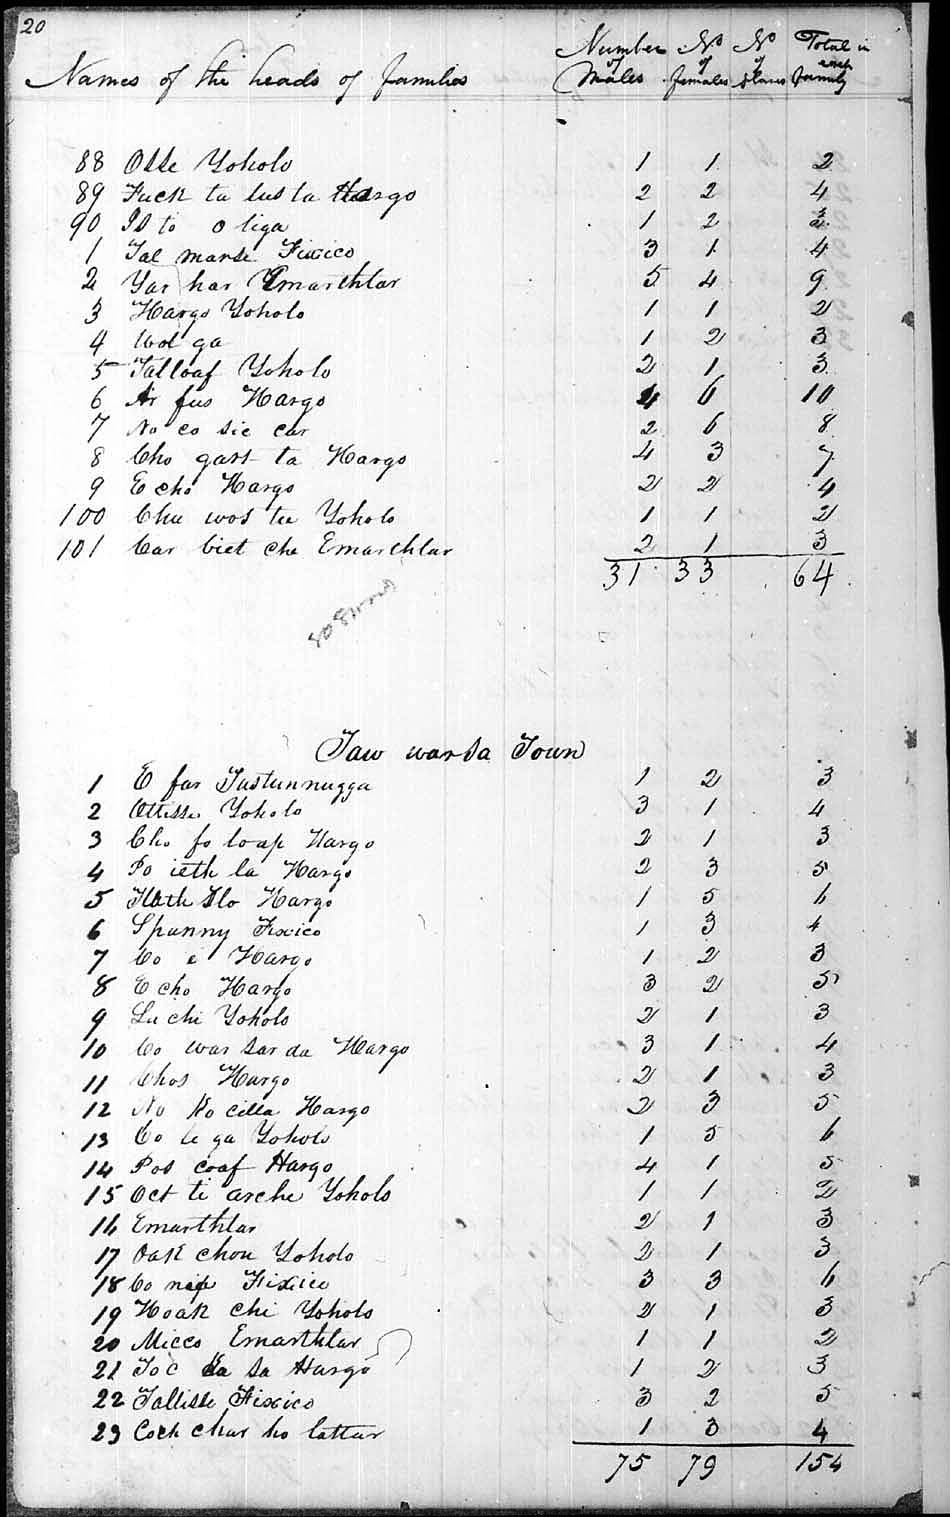 20
Names of the heads of families Number of Males No of females No of Slaves Total in each family
88 Osse Yoholo 1 1 2
89 Fuck ta lus ta Hargo 2 2 4
90 Is to o liga 1 2 3
1 Tal marse Fixico 3 1 4
2 Yar har Emarthlar 5 4 9
3 Hargo Yoholo 1 1 2
4 Wol ga 1 2 3
5 Talloaf Yoholo 2 1 3
6 Ar fus Hargo 4 6 10
7 No co sic car 2 6 8
8 Cho gart ta Hargo 4 3 7
9 E cho Hargo 2 2 4
100 Chu wos tee Yoholo 1 1 2
101 Car biet che Emarthlar 2 1 3
31 33 64
Taw warsa Town
1 E far Tustunnugga 1 2 3
2 Ottisse Yoholo 3 1 4
3 Cho fo loap Hargo 2 1 3
4 Po ieth la Hargo 2 3 5
5 Hoth Hargo 1 5 6
6 Spanny Fixico 1 3 4
7 Co e Hargo 1 2 3
8 E cho Hargo 3 2 5
9 Lu chi Yoholo 2 1 3
10 Co war sar da Hargo 3 1 4
11 Chos Hargo 2 1 3
12 No Ko cilla Hargo 2 3 5
13 Co le ga Yoholo 1 5 6
14 Pos coaf Hargo 4 1 5
15 Oct ti arche Yoholo 1 1 2
16 Emarthlar 2 1 3
17 Oak chon Yoholo 2 1 3
18 Co nip Fixico 3 3 6
19 Hoak chi Yoholo 2 1 3
20 Micco Emarthlar 1 1 2
21 Toc sa Hargo 1 2 3
22 Tallisse Fixico 3 2 5
23 Coch char ho lattar 1 3 4
75 79 154